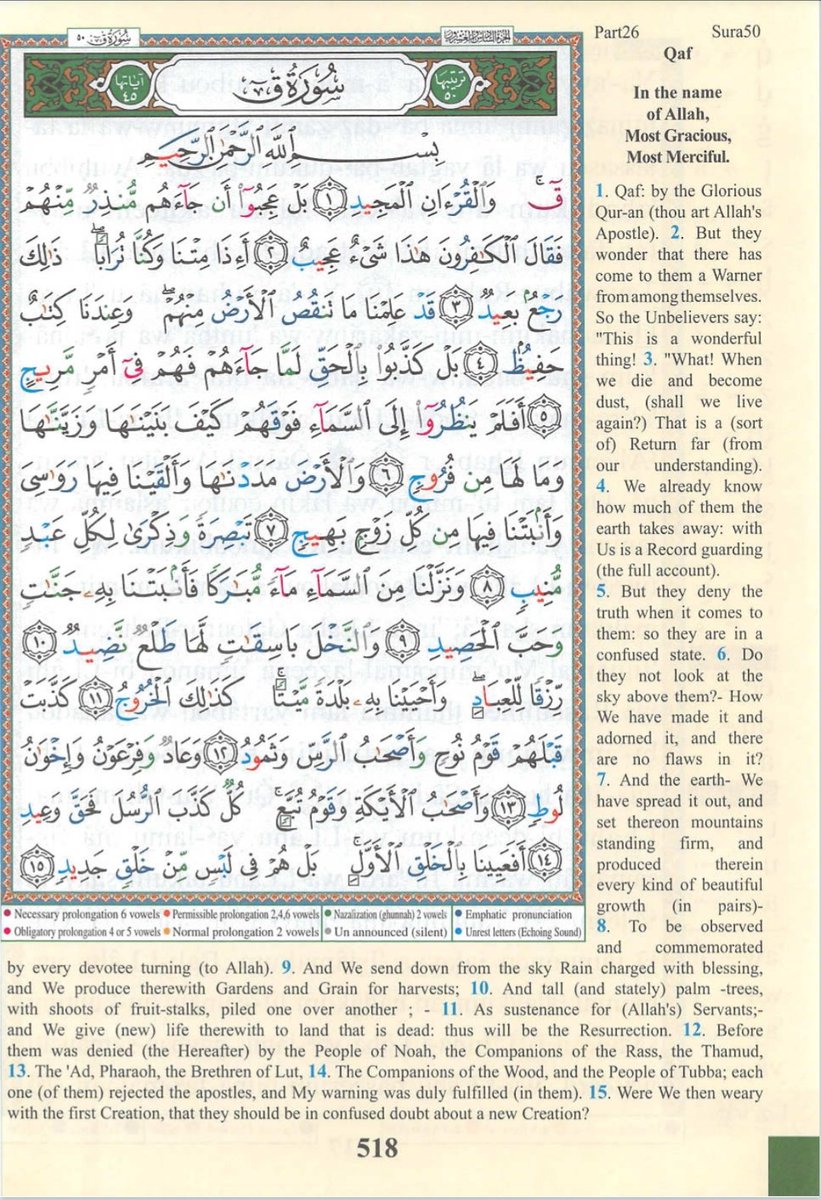 سُورَةُ قٓ ٥٠
الجزء السادس والعشرون
Part26 Sura50
ترتيبها ٥٠
سُورَةُ قٓ
آياتها ٤٥
بِسْمِ ٱللَّهِ ٱلرَّحْمَٰنِ ٱلرَّحِيمِ
قٓ ۚ وَٱلْقُرْءَانِ ٱلْمَجِيدِ ١ بَلْ عَجِبُوٓا۟ أَن جَآءَهُم مُّنذِرٌ مِّنْهُمْ
فَقَالَ ٱلْكَٰفِرُونَ هَٰذَا شَىْءٌ عَجِيبٌ ٢ أَءِذَا مِتْنَا وَكُنَّا تُرَابًا ۖ ذَٰلِكَ
رَجْعٌۢ بَعِيدٌ ٣ قَدْ عَلِمْنَا مَا تَنقُصُ ٱلْأَرْضُ مِنْهُمْ ۖ وَعِندَنَا كِتَٰبٌ
حَفِيظٌۢ ٤ بَلْ كَذَّبُوا۟ بِٱلْحَقِّ لَمَّا جَآءَهُمْ فَهُمْ فِىٓ أَمْرٍ مَّرِيجٍ
٥ أَفَلَمْ يَنظُرُوٓا۟ إِلَى ٱلسَّمَآءِ فَوْقَهُمْ كَيْفَ بَنَيْنَٰهَا وَزَيَّنَّٰهَا
وَمَا لَهَا مِن فُرُوجٍ ٦ وَٱلْأَرْضَ مَدَدْنَٰهَا وَأَلْقَيْنَا فِيهَا رَوَٰسِىَ
وَأَنۢبَتْنَا فِيهَا مِن كُلِّ زَوْجٍۭ بَهِيجٍ ٧ تَبْصِرَةً وَذِكْرَىٰ لِكُلِّ عَبْدٍ
مُّنِيبٍ ٨ وَنَزَّلْنَا مِنَ ٱلسَّمَآءِ مَآءً مُّبَٰرَكًا فَأَنۢبَتْنَا بِهِۦ جَنَّٰتٍ
وَحَبَّ ٱلْحَصِيدِ ٩ وَٱلنَّخْلَ بَاسِقَٰتٍ لَّهَا طَلْعٌ نَّضِيدٌ ١٠
رِّزْقًا لِّلْعِبَادِ ۖ وَأَحْيَيْنَا بِهِۦ بَلْدَةً مَّيْتًا ۚ كَذَٰلِكَ ٱلْخُرُوجُ ١١ كَذَّبَتْ
قَبْلَهُمْ قَوْمُ نُوحٍ وَأَصْحَٰبُ ٱلرَّسِّ وَثَمُودُ ١٢ وَعَادٌ وَفِرْعَوْنُ وَإِخْوَٰنُ
لُوطٍ ١٣ وَأَصْحَٰبُ ٱلْأَيْكَةِ وَقَوْمُ تُبَّعٍ ۚ كُلٌّ كَذَّبَ ٱلرُّسُلَ فَحَقَّ وَعِيدِ
١٤ أَفَعَيِينَا بِٱلْخَلْقِ ٱلْأَوَّلِ ۚ بَلْ هُمْ فِى لَبْسٍ مِّنْ خَلْقٍ جَدِيدٍ ١٥
Necessary prolongation 6 vowels Permissible prolongation 2,4,6 vowels Nazalization (ghunnah) 2 vowels Emphatic pronunciation
Obligatory prolongation 4 or 5 vowels Normal prolongation 2 vowels Un announced (silent) Unrest letters (Echoing Sound)
Qaf
In the name
of Allah,
Most Gracious,
Most Merciful.
1. Qaf: by the Glorious
Qur-an (thou art Allah's
Apostle). 2. But they
wonder that there has
come to them a Warner
from among themselves.
So the Unbelievers say:
"This is a wonderful
thing! 3. "What! When
we die and become
dust, (shall we live
again?) That is a (sort
of) Return far (from
our understanding).
4. We already know
how much of them the
earth takes away: with
Us is a Record guarding
(the full account).
5. But they deny the
truth when it comes to
them: so they are in a
confused state. 6. Do
they not look at the
sky above them?- How
We have made it and
adorned it, and there
are no flaws in it?
7. And the earth- We
have spread it out, and
set thereon mountains
standing firm, and
produced therein
every kind of beautiful
growth (in pairs)-
8. To be observed
and commemorated
by every devotee turning (to Allah). 9. And We send down from the sky Rain charged with blessing,
and We produce therewith Gardens and Grain for harvests; 10. And tall (and stately) palm -trees,
with shoots of fruit-stalks, piled one over another ; - 11. As sustenance for (Allah's) Servants;-
and We give (new) life therewith to land that is dead: thus will be the Resurrection. 12. Before
them was denied (the Hereafter) by the People of Noah, the Companions of the Rass, the Thamud,
13. The 'Ad, Pharaoh, the Brethren of Lut, 14. The Companions of the Wood, and the People of Tubba; each
one (of them) rejected the apostles, and My warning was duly fulfilled (in them). 15. Were We then weary
with the first Creation, that they should be in confused doubt about a new Creation?
518